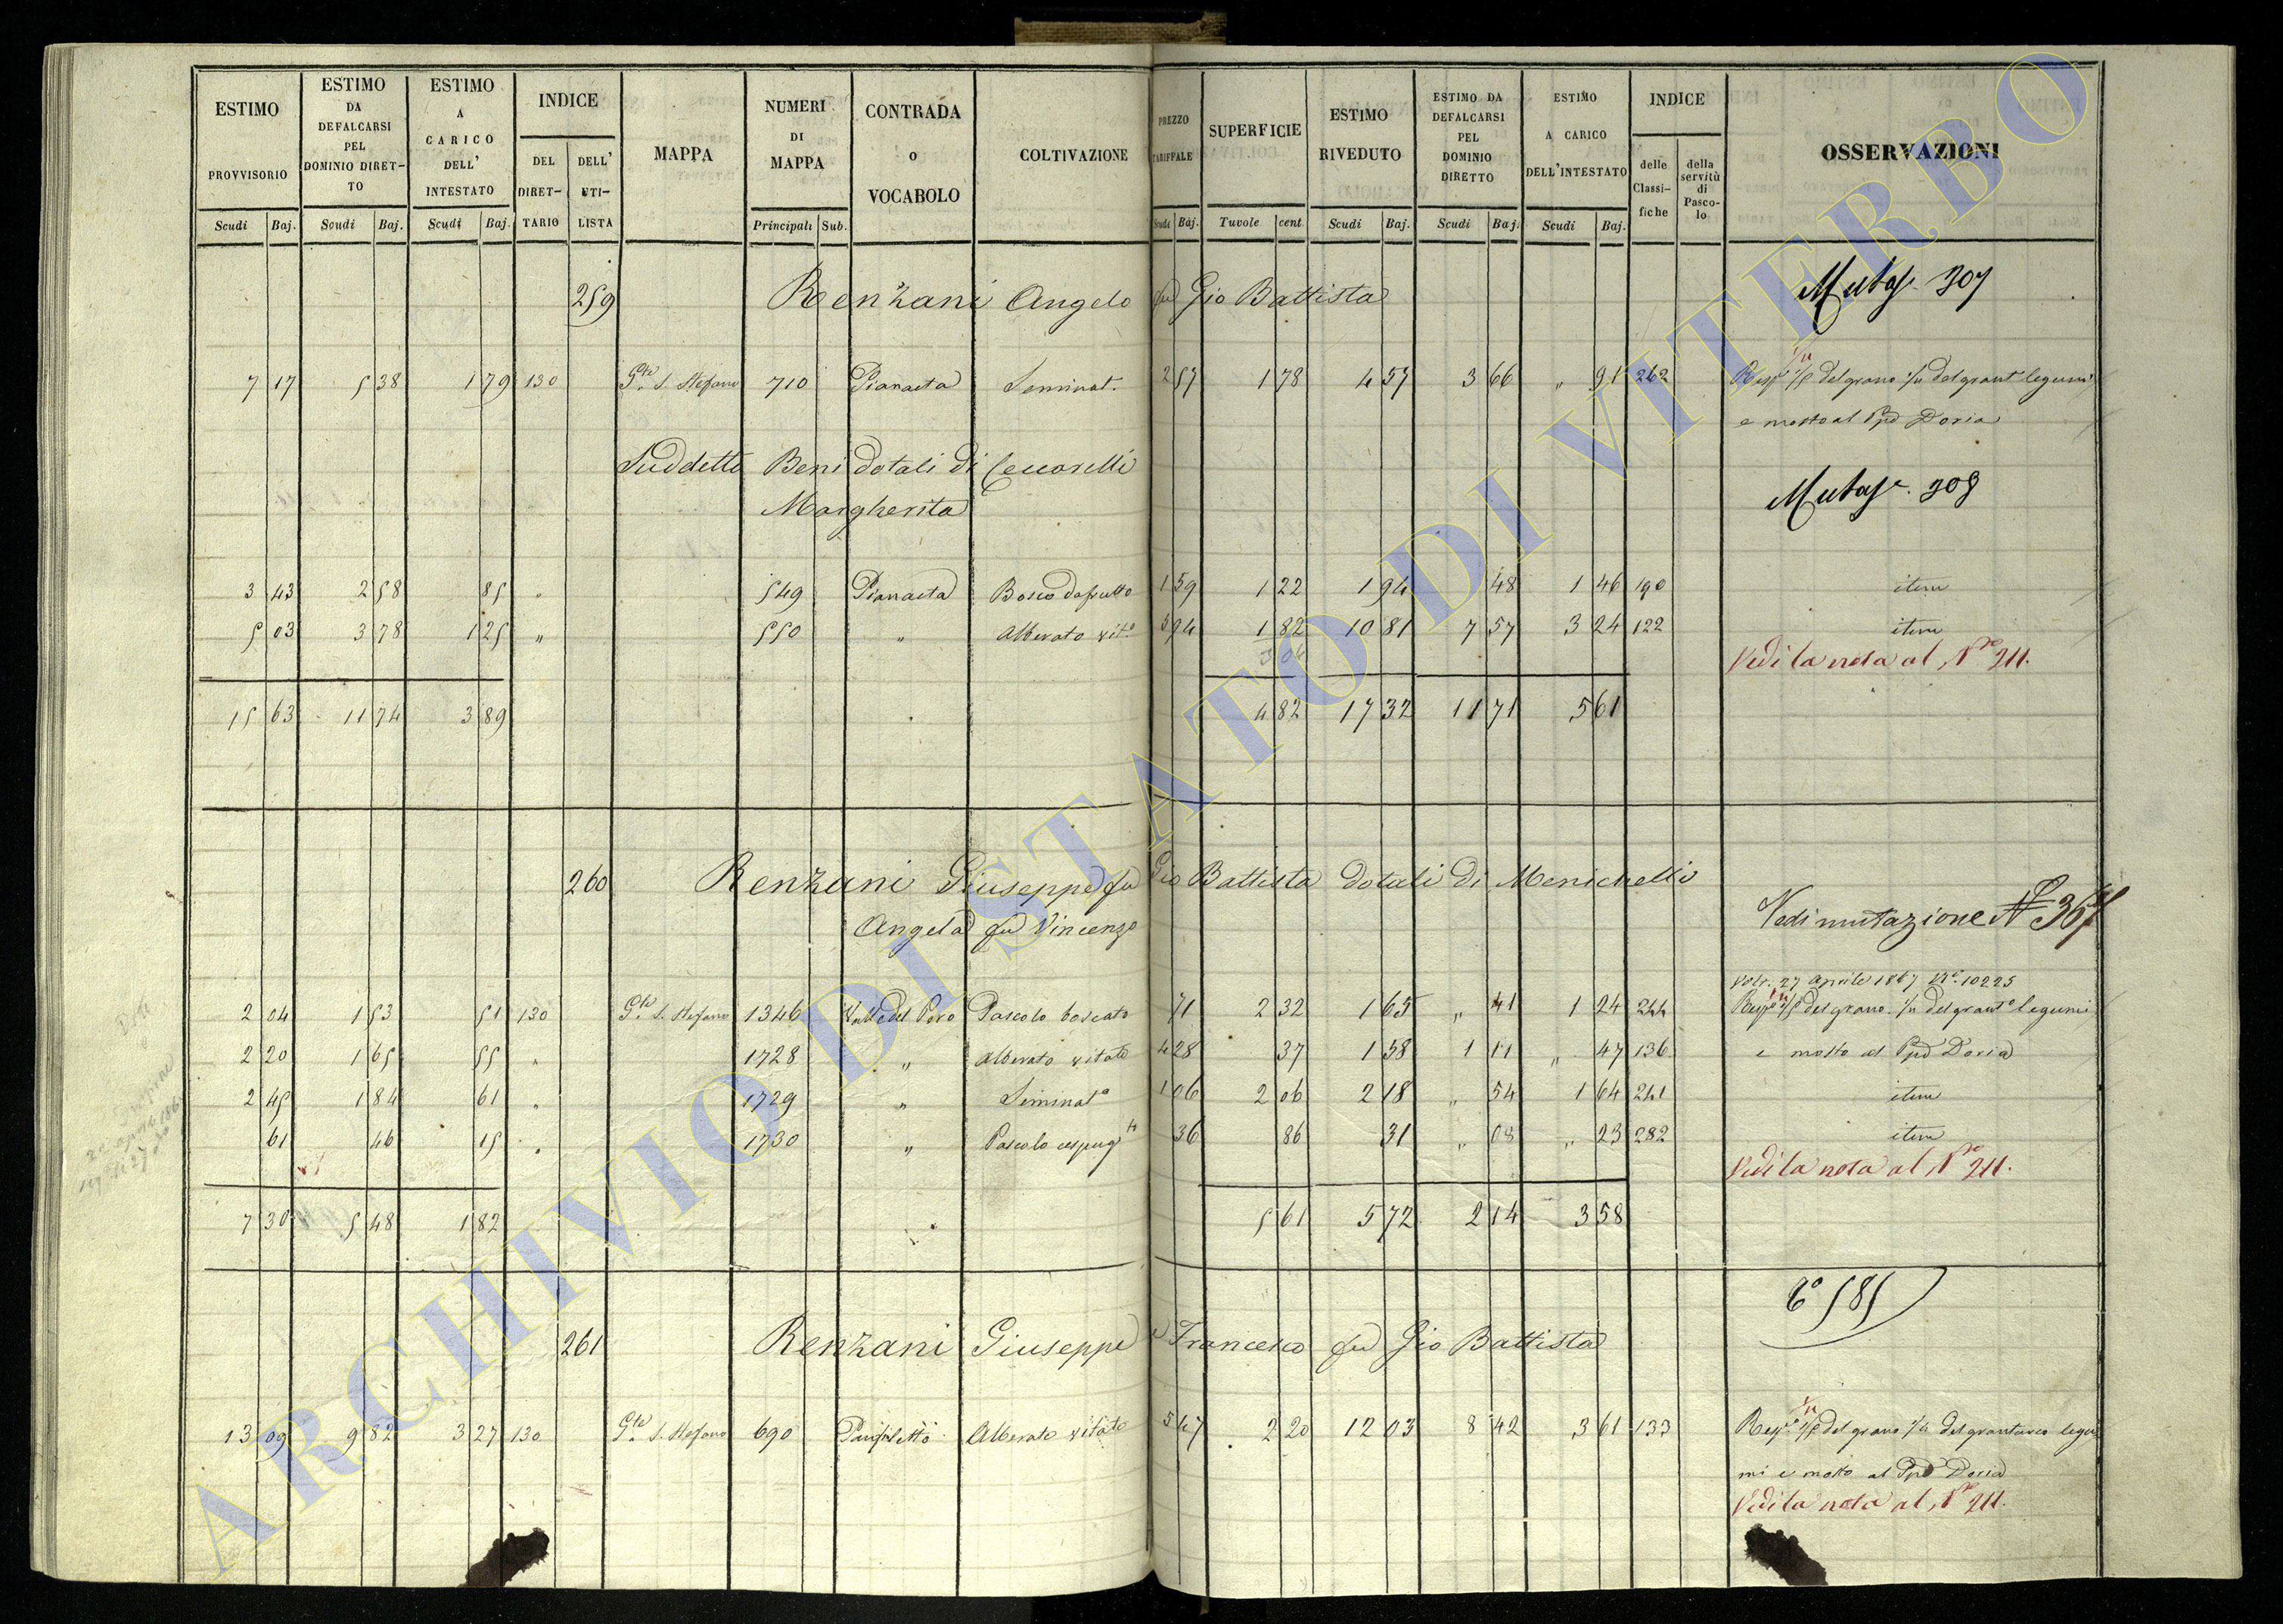 ESTIMO PROVVISORIO Scudi Baj.
ESTIMO DA DEFALCARSI PEL DOMINIO DIRET-TO Scudi Baj.
ESTIMO A CARICO DELL' INTESTATO Scudi Baj.
INDICE DEL DIRET-TARIO DELL' UTI-LISTA
MAPPA
NUMERI DI MAPPA Principali Sub.
CONTRADA o VOCABOLO
COLTIVAZIONE
PREZZO TARIFFALE Scudi Baj.
SUPERFICIE Tavole cent.
ESTIMO RIVEDUTO Scudi Baj.
ESTIMO DA DEFALCARSI PEL DOMINIO DIRETTO Scudi Baj.
ESTIMO A CARICO DELL'INTESTATO Scudi Baj.
INDICE delle Classi-fiche della servitù di Pasco-lo
OSSERVAZIONI
259 Renzani Angelo fu Gio Battista 307
7 17 5 38 1 79 130 S. Stefano 710 Pianaeta Seminat. 2 57 1 78 4 57 3 66 " 91 262 del grano legumi
e mosto al Ppe Doria
Suddetto Beni dotali di Ceccarelli
Margherita
3 43 2 58 85 " 549 Pianaeta Bosco da frutto 1 59 1 22 1 94 48 1 46 190 item
5 03 3 78 1 25 " 550 " Alberato vito 5 94 1 82 10 81 7 57 3 24 122 item
3 04
Vedi la nota al No 211.
15 63 11 74 3 89 4 82 17 32 11 71 5 61
260 Renzani Giuseppe fu Gio Battista dotali di Menichelli
Angela fu Vincenzo
Vedi mutazione No
27 Aprile 1867 No 10225
2 04 1 53 51 130 S. Stefano 1346 Valle del Pero Pascolo boscato 71 2 32 1 65 " 41 1 24 244 del grano legumi
2 20 1 65 55 " 1728 " Alberato vitato 4 28 37 1 58 1 11 " 47 136 e mosto al Ppe Doria
2 45 1 84 61 " 1729 " Seminato 1 06 2 06 2 18 " 54 1 64 241 item
61 46 15 " 1730 " Pascolo cespugto 36 86 31 " 08 " 23 282 item
Vedi la nota al No 211.
7 30 5 48 1 82 5 61 5 72 2 14 3 58
261 Renzani Giuseppe e Francesco fu Gio Battista
13 09 9 82 3 27 130 S. Stefano 690 Panfiletto Alberato vitato 5 47 2 20 12 03 8 42 3 61 133 del grano del granturco legu
mi e mosto al Ppe Doria
Vedi la nota al No 211.
ARCHIVIO DI STATO DI VITERBO